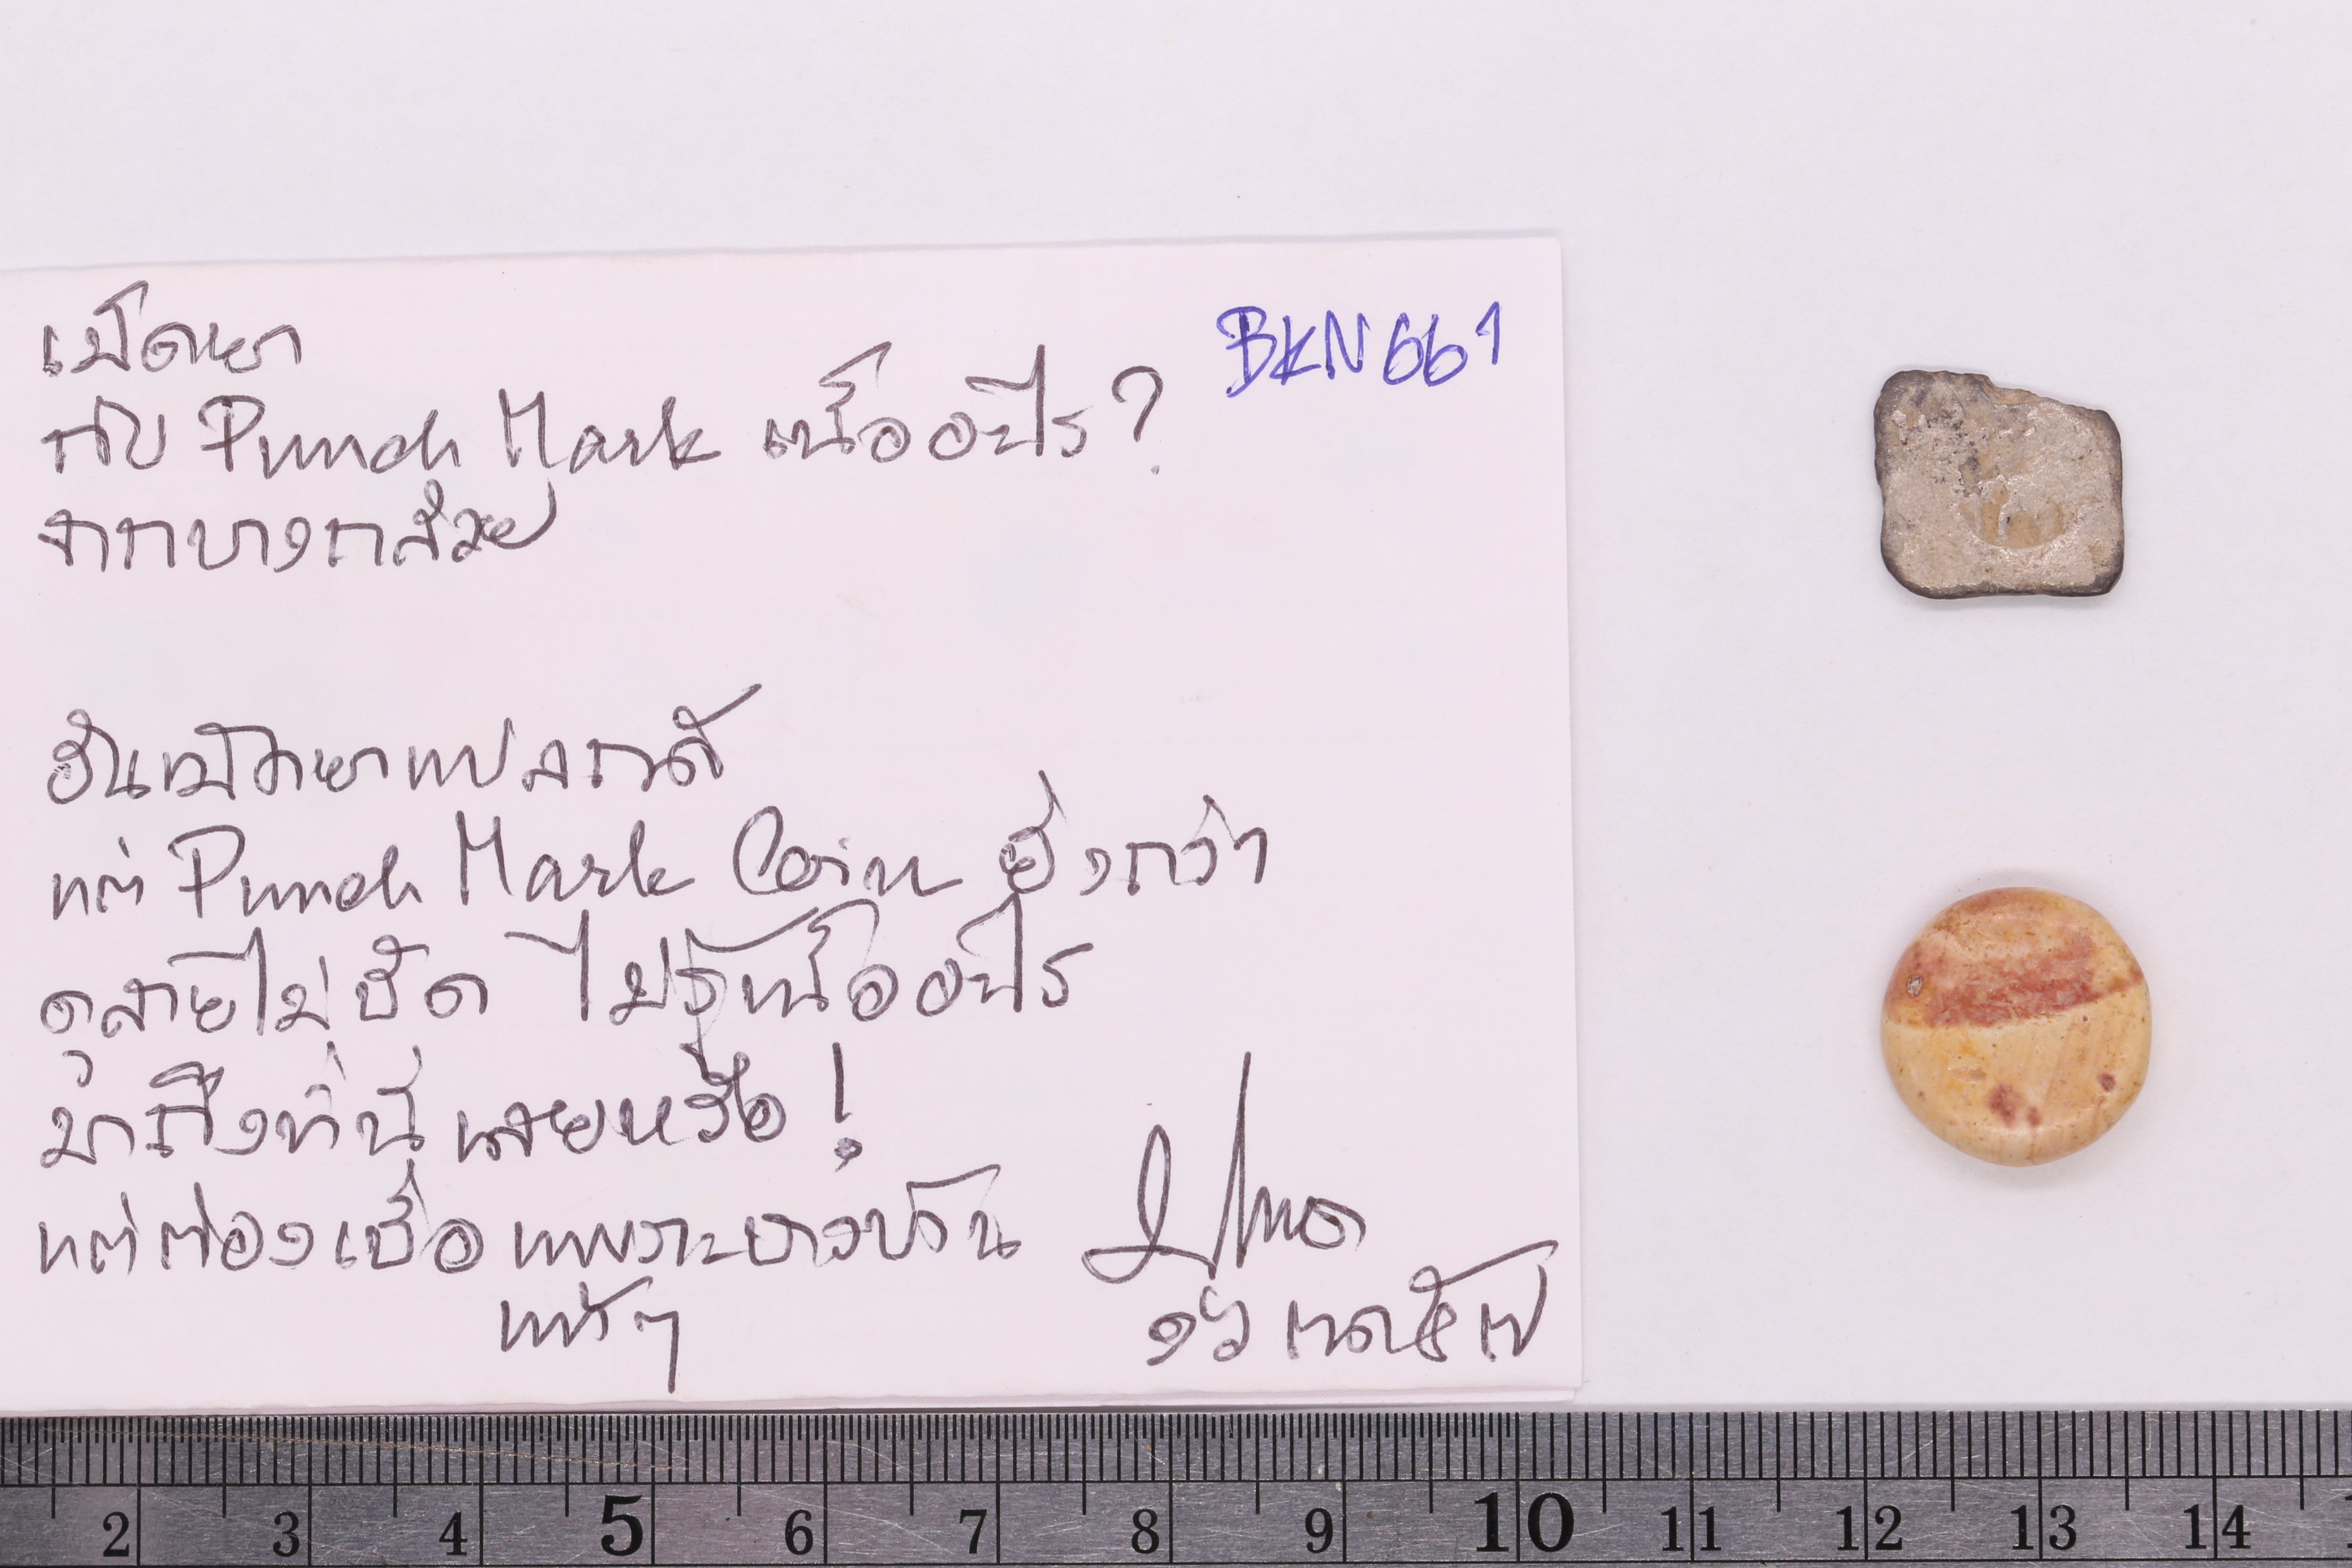 เม็ดยา
กับ Punch Mark เนื้ออะไร?
จากบางกล้วย
BKN661
อันเม็ดยาแปลกดี
แต่ Punch Mark Coin ยิ่งกว่า
ดูลายไม่ชัด ไม่รู้เนื้ออะไร
มาถึงที่นี่เลยหรือ!
แต่ต้องเชื่อ เพราะชาวบ้าน
แท้ๆ
2 3 4 5 6 7 8 9 10 11 12 13 14